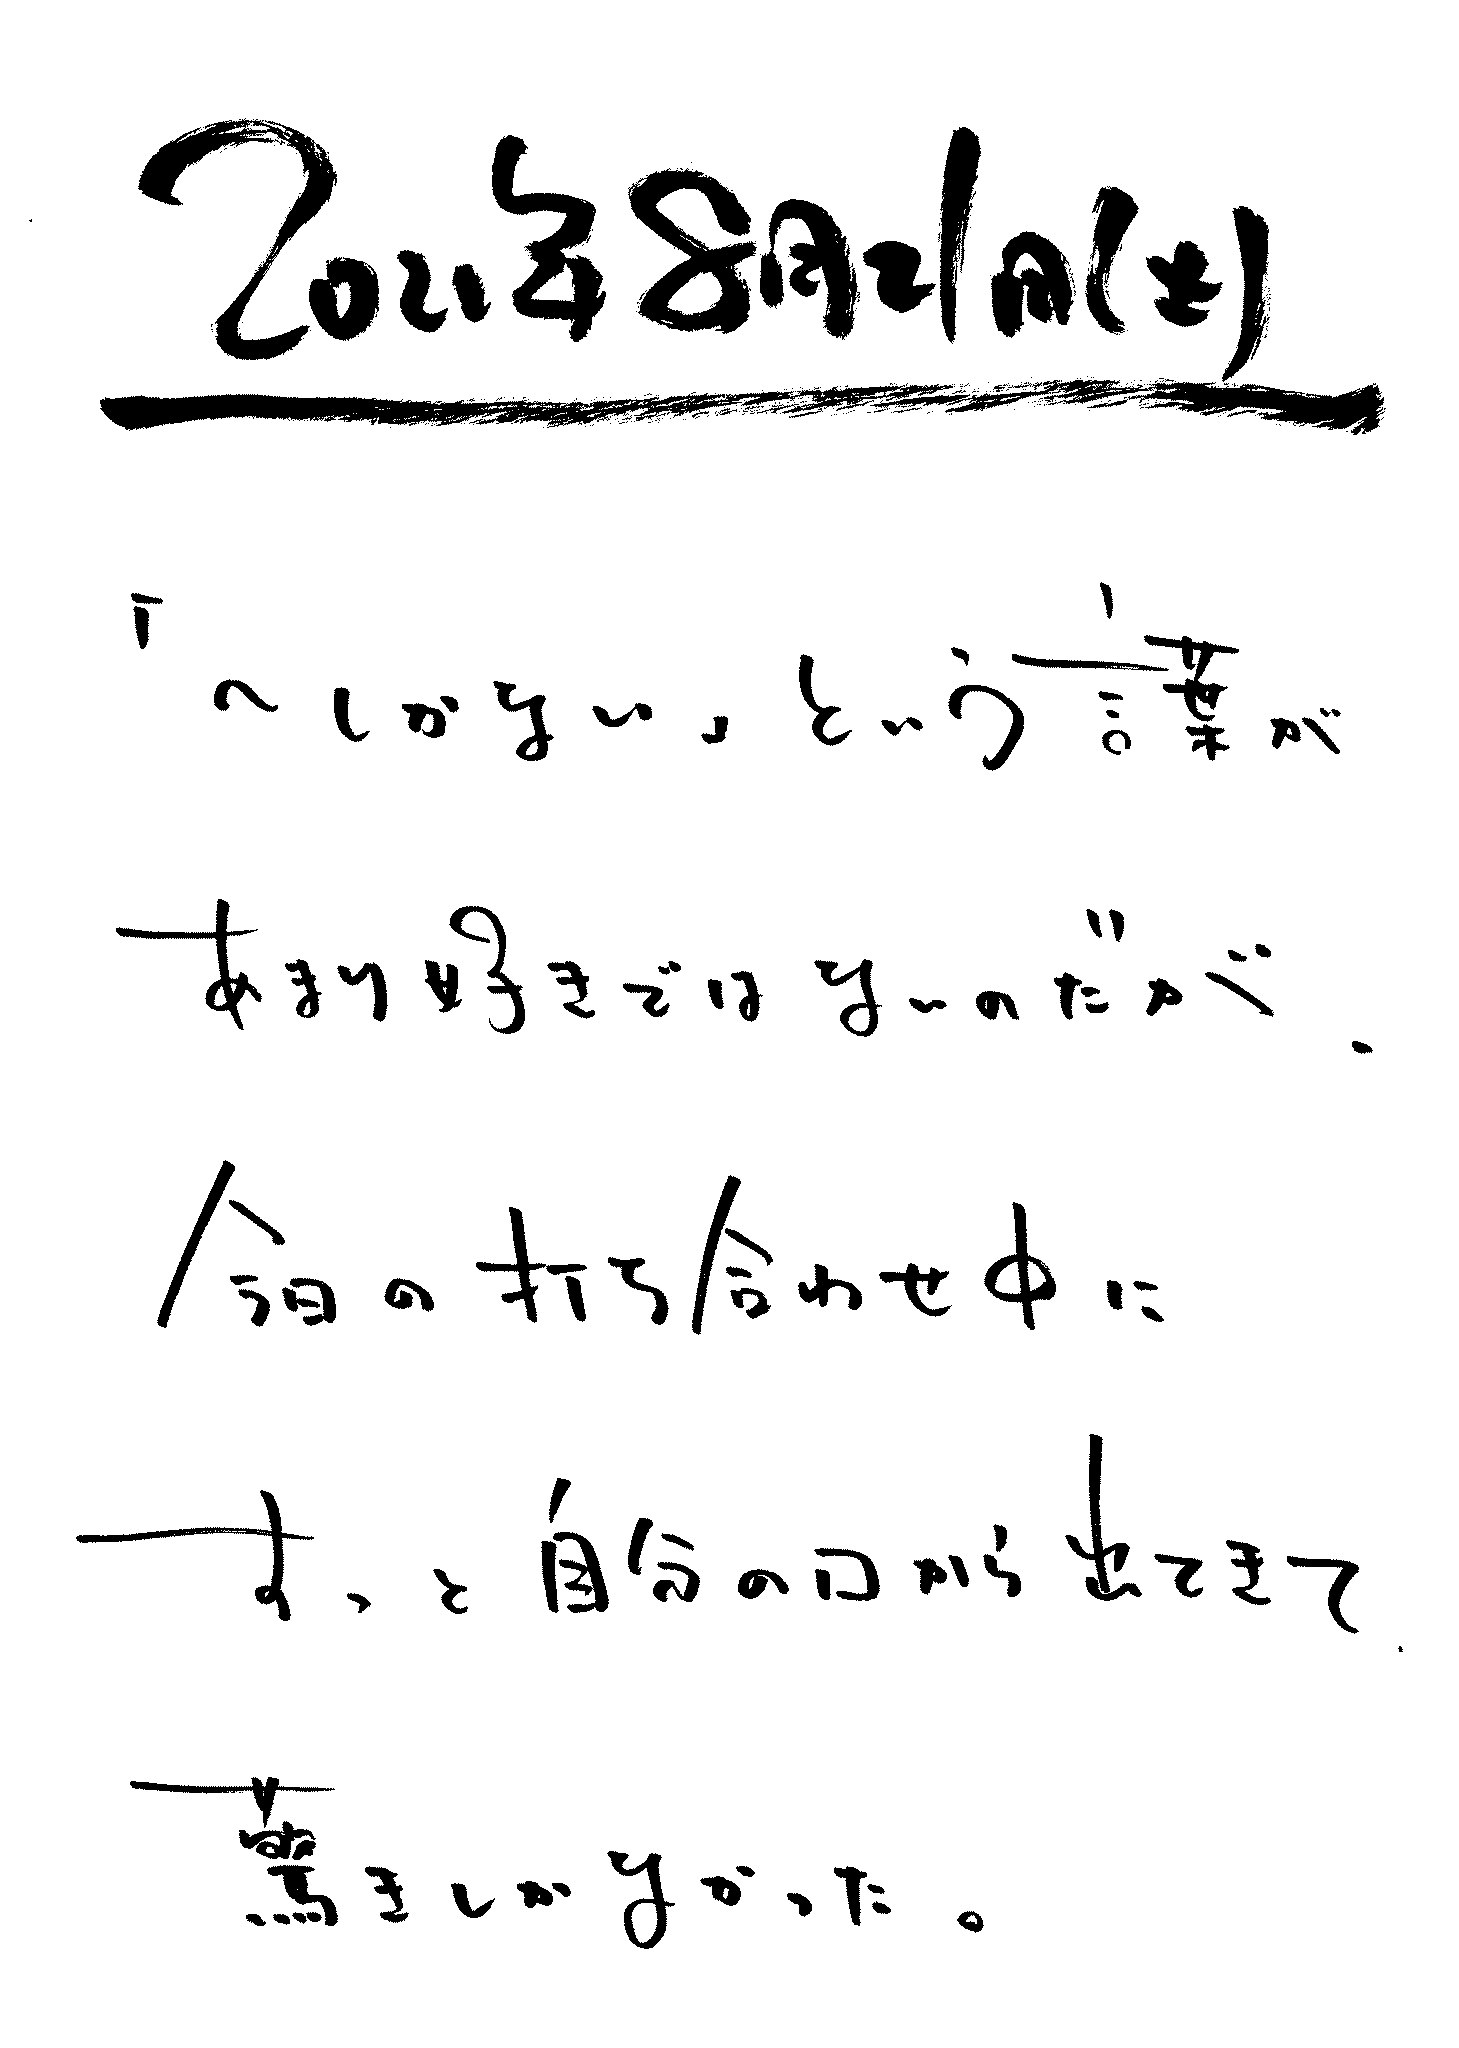 2021年8月21日(土)
「〜しかない」という言葉が
あまり好きではないのだが、
今日の打ち合わせ中に
ずっと自分の口から出てきて
驚きしかなかった。